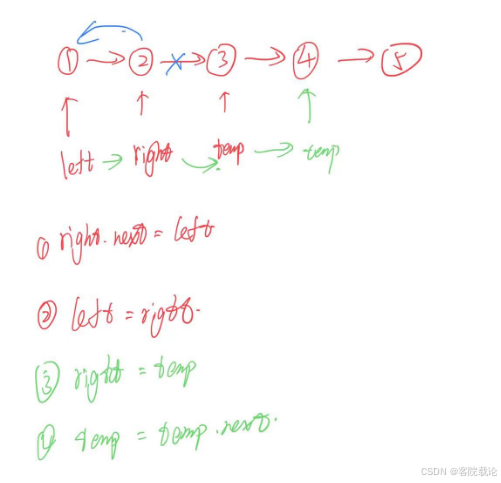 ① → ② → ③ → ④ → ⑤
left → right → temp → temp
① right.next = left
② left = right.
③ right = temp
④ temp = temp.next.
CSDN @客院载论